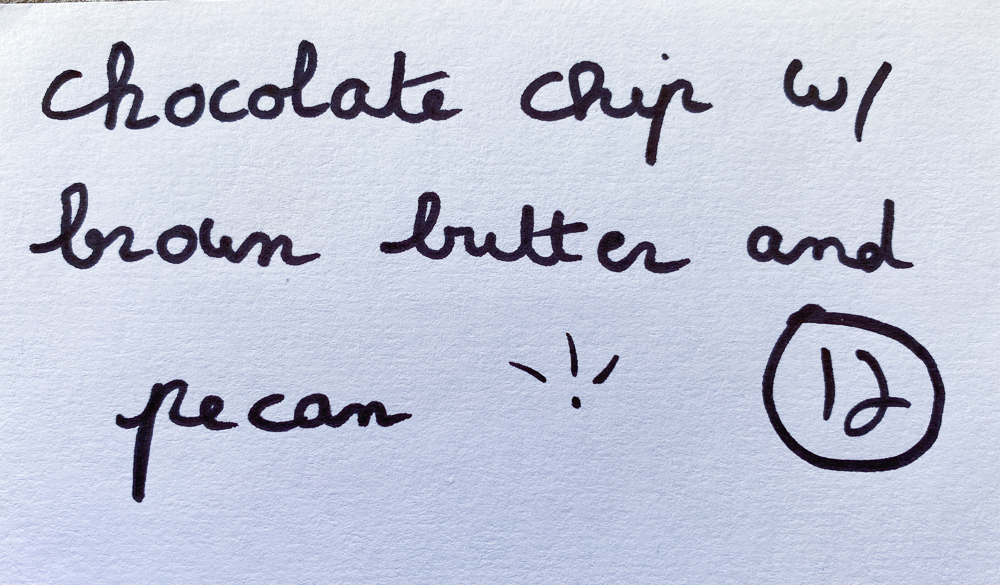 chocolate chip w/
brown butter and
pecan
12